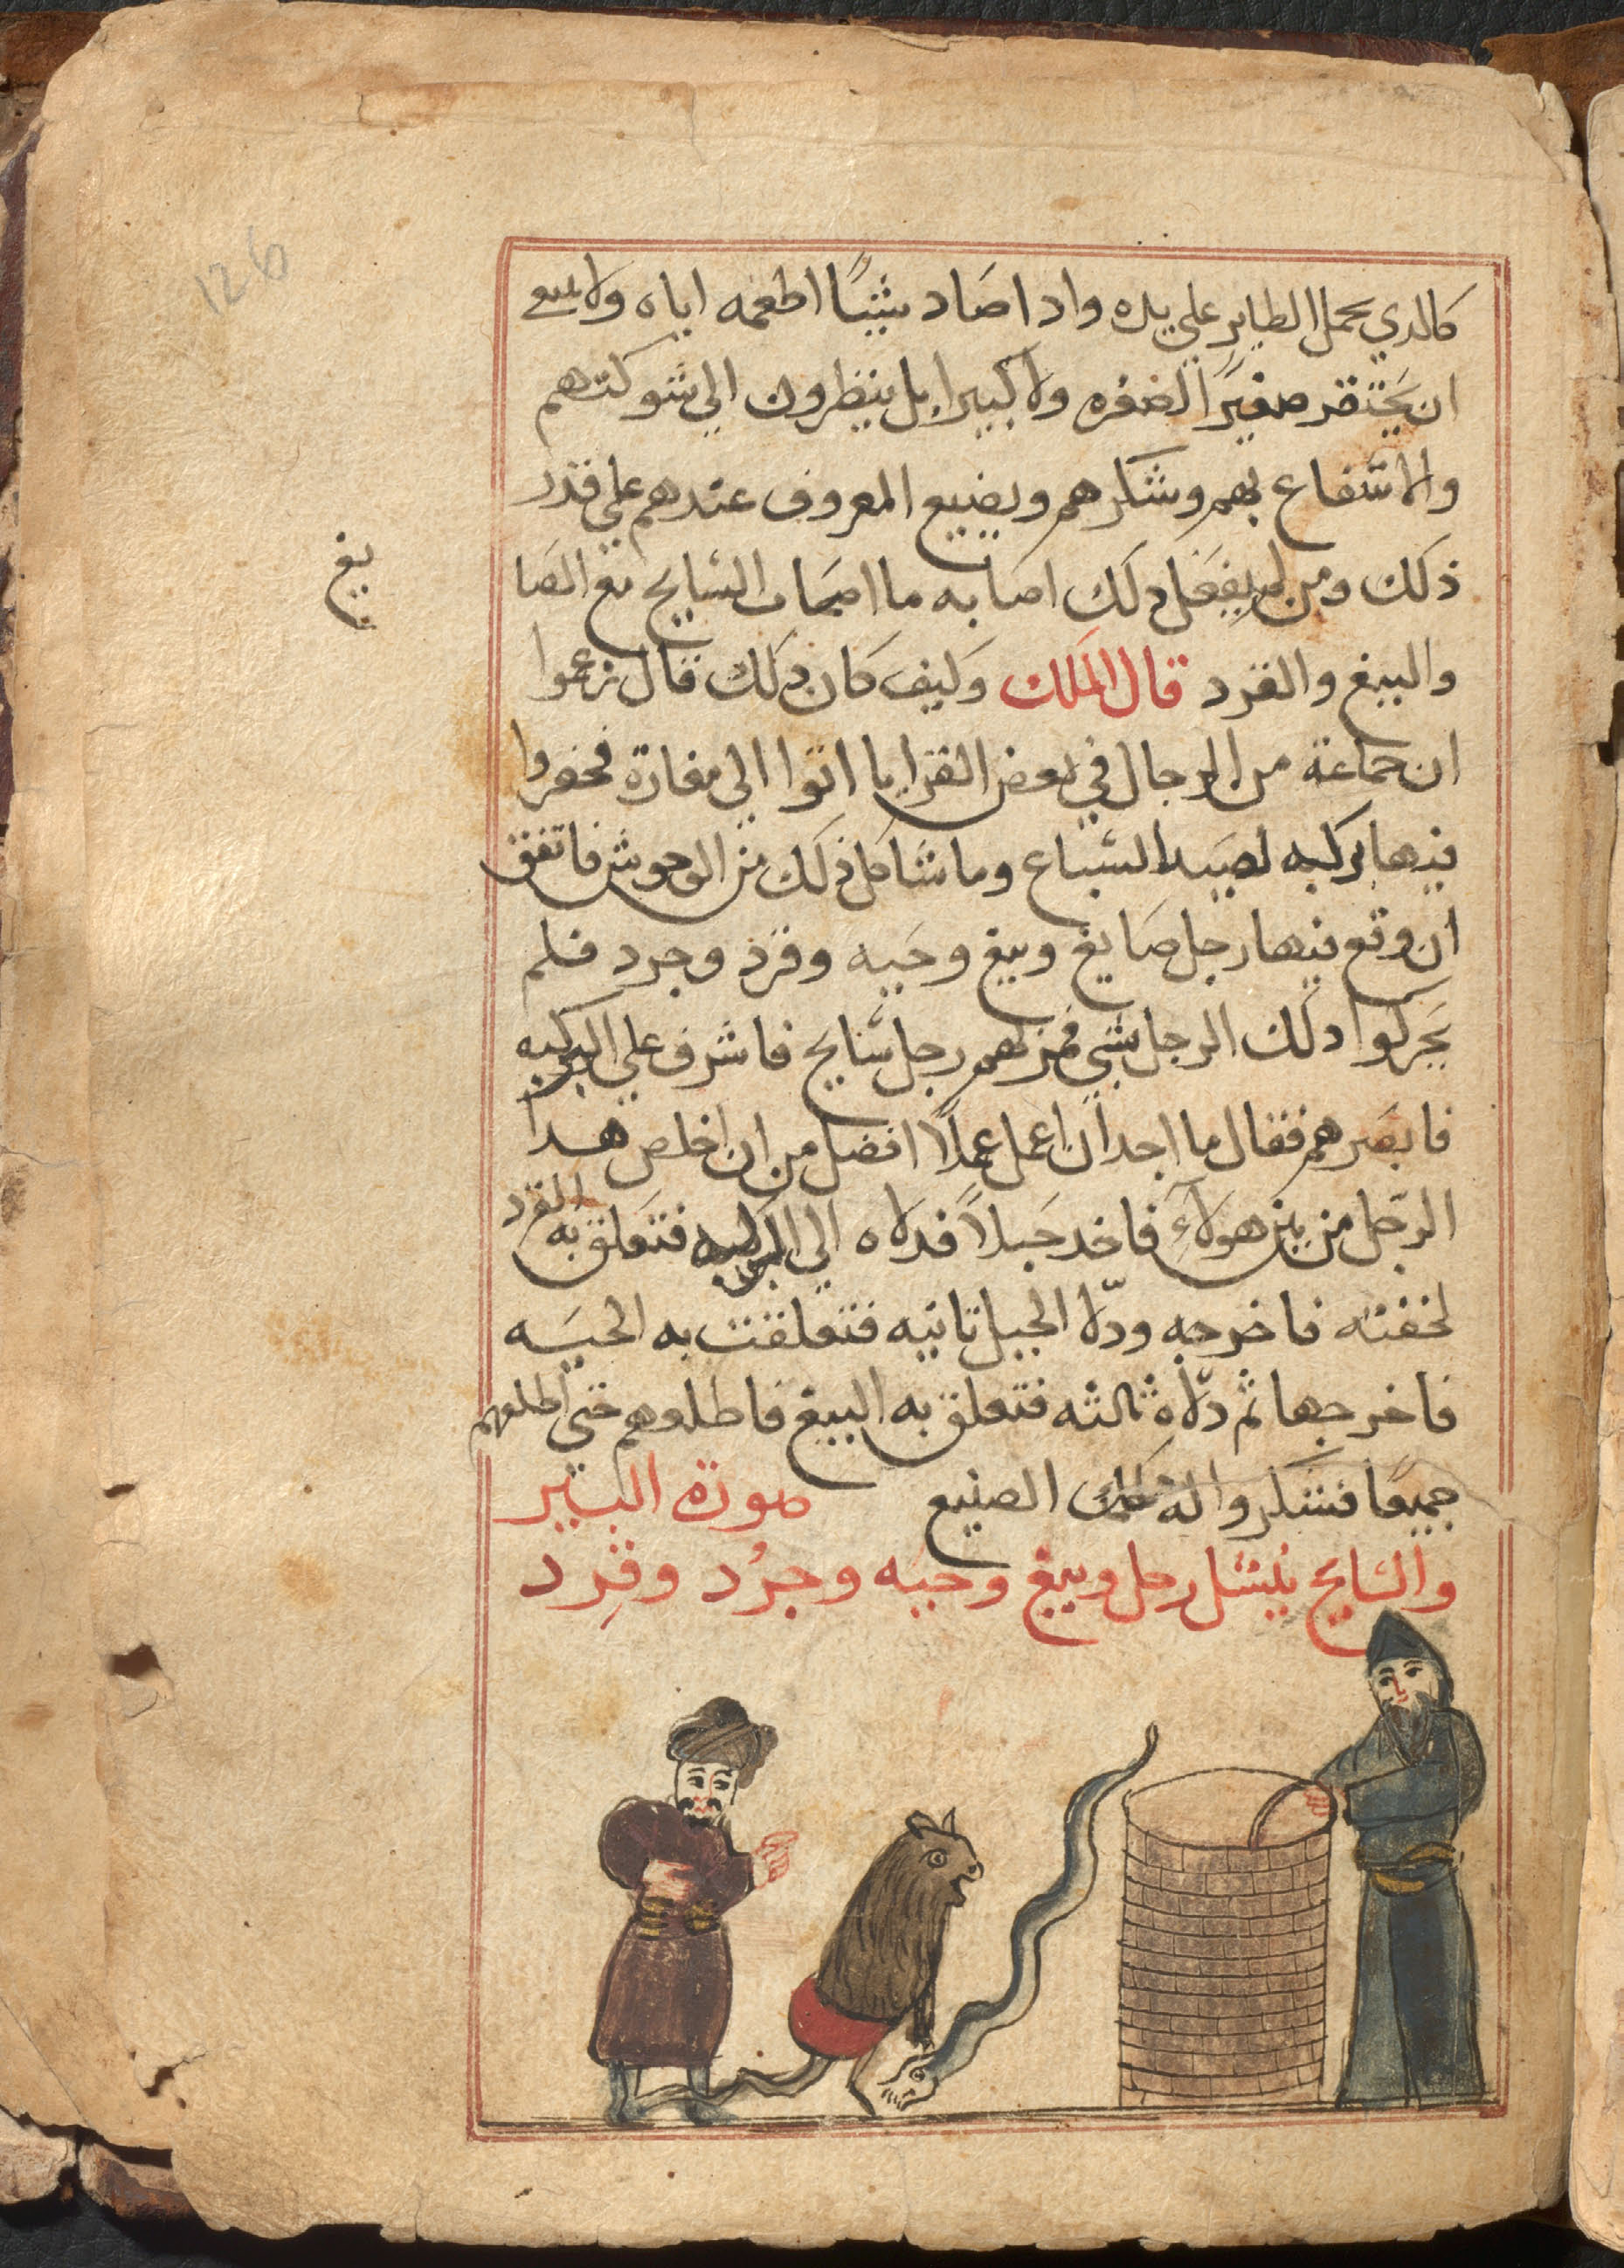 126
كالدي يحمل الطاير علي يده وادا صاد شيًا اطعمه اياه ولا ينبغي
ان يحتقر صغيرًا لصغره ولا كبيرا بل ينظرون الي شوكتهم
والانتفاع بهم وشكرهم ويضيع المعروف عندهم علي قدر
ذلك ومن لم يفعل دلك اصابه ما اصاب السايح مع الصا
يغ
والببغ والقرد قال الملك وكيف كان دلك قال زعموا
ان جماعة من الرجال في بعض القرايا اتوا الي مغارة فحفروا
فيها ركيه لصيد السباع وما شاكل ذلك من الوحوش فاتفق
ان وقع فيها رجل صايغ وببغ وحيه وقرد وجرد فلم
يحركوا دلك الرجل بشي فمر بهم رجل سايح فاشرف علي الركيه
فابصرهم فقال ما اجد ان اعمل عملًا افضل من ان اخلص هدا
الرجل من بين هولآءِ فاخد حبلاً فدلاه الي الركيه فتعلق به القرد
لخفته فاخرجه ودلّا الحبل تانيه فتعلقت به الحيه
فاخرجها ثم دلّاه ثالثه فتعلق به الببغ فاطلعهم حتي اطلعهم
جميعًا فشكروا له الصنيع صورة البير
والسايح ينشل رجل وببغ وحيه وجرُد وقِرد